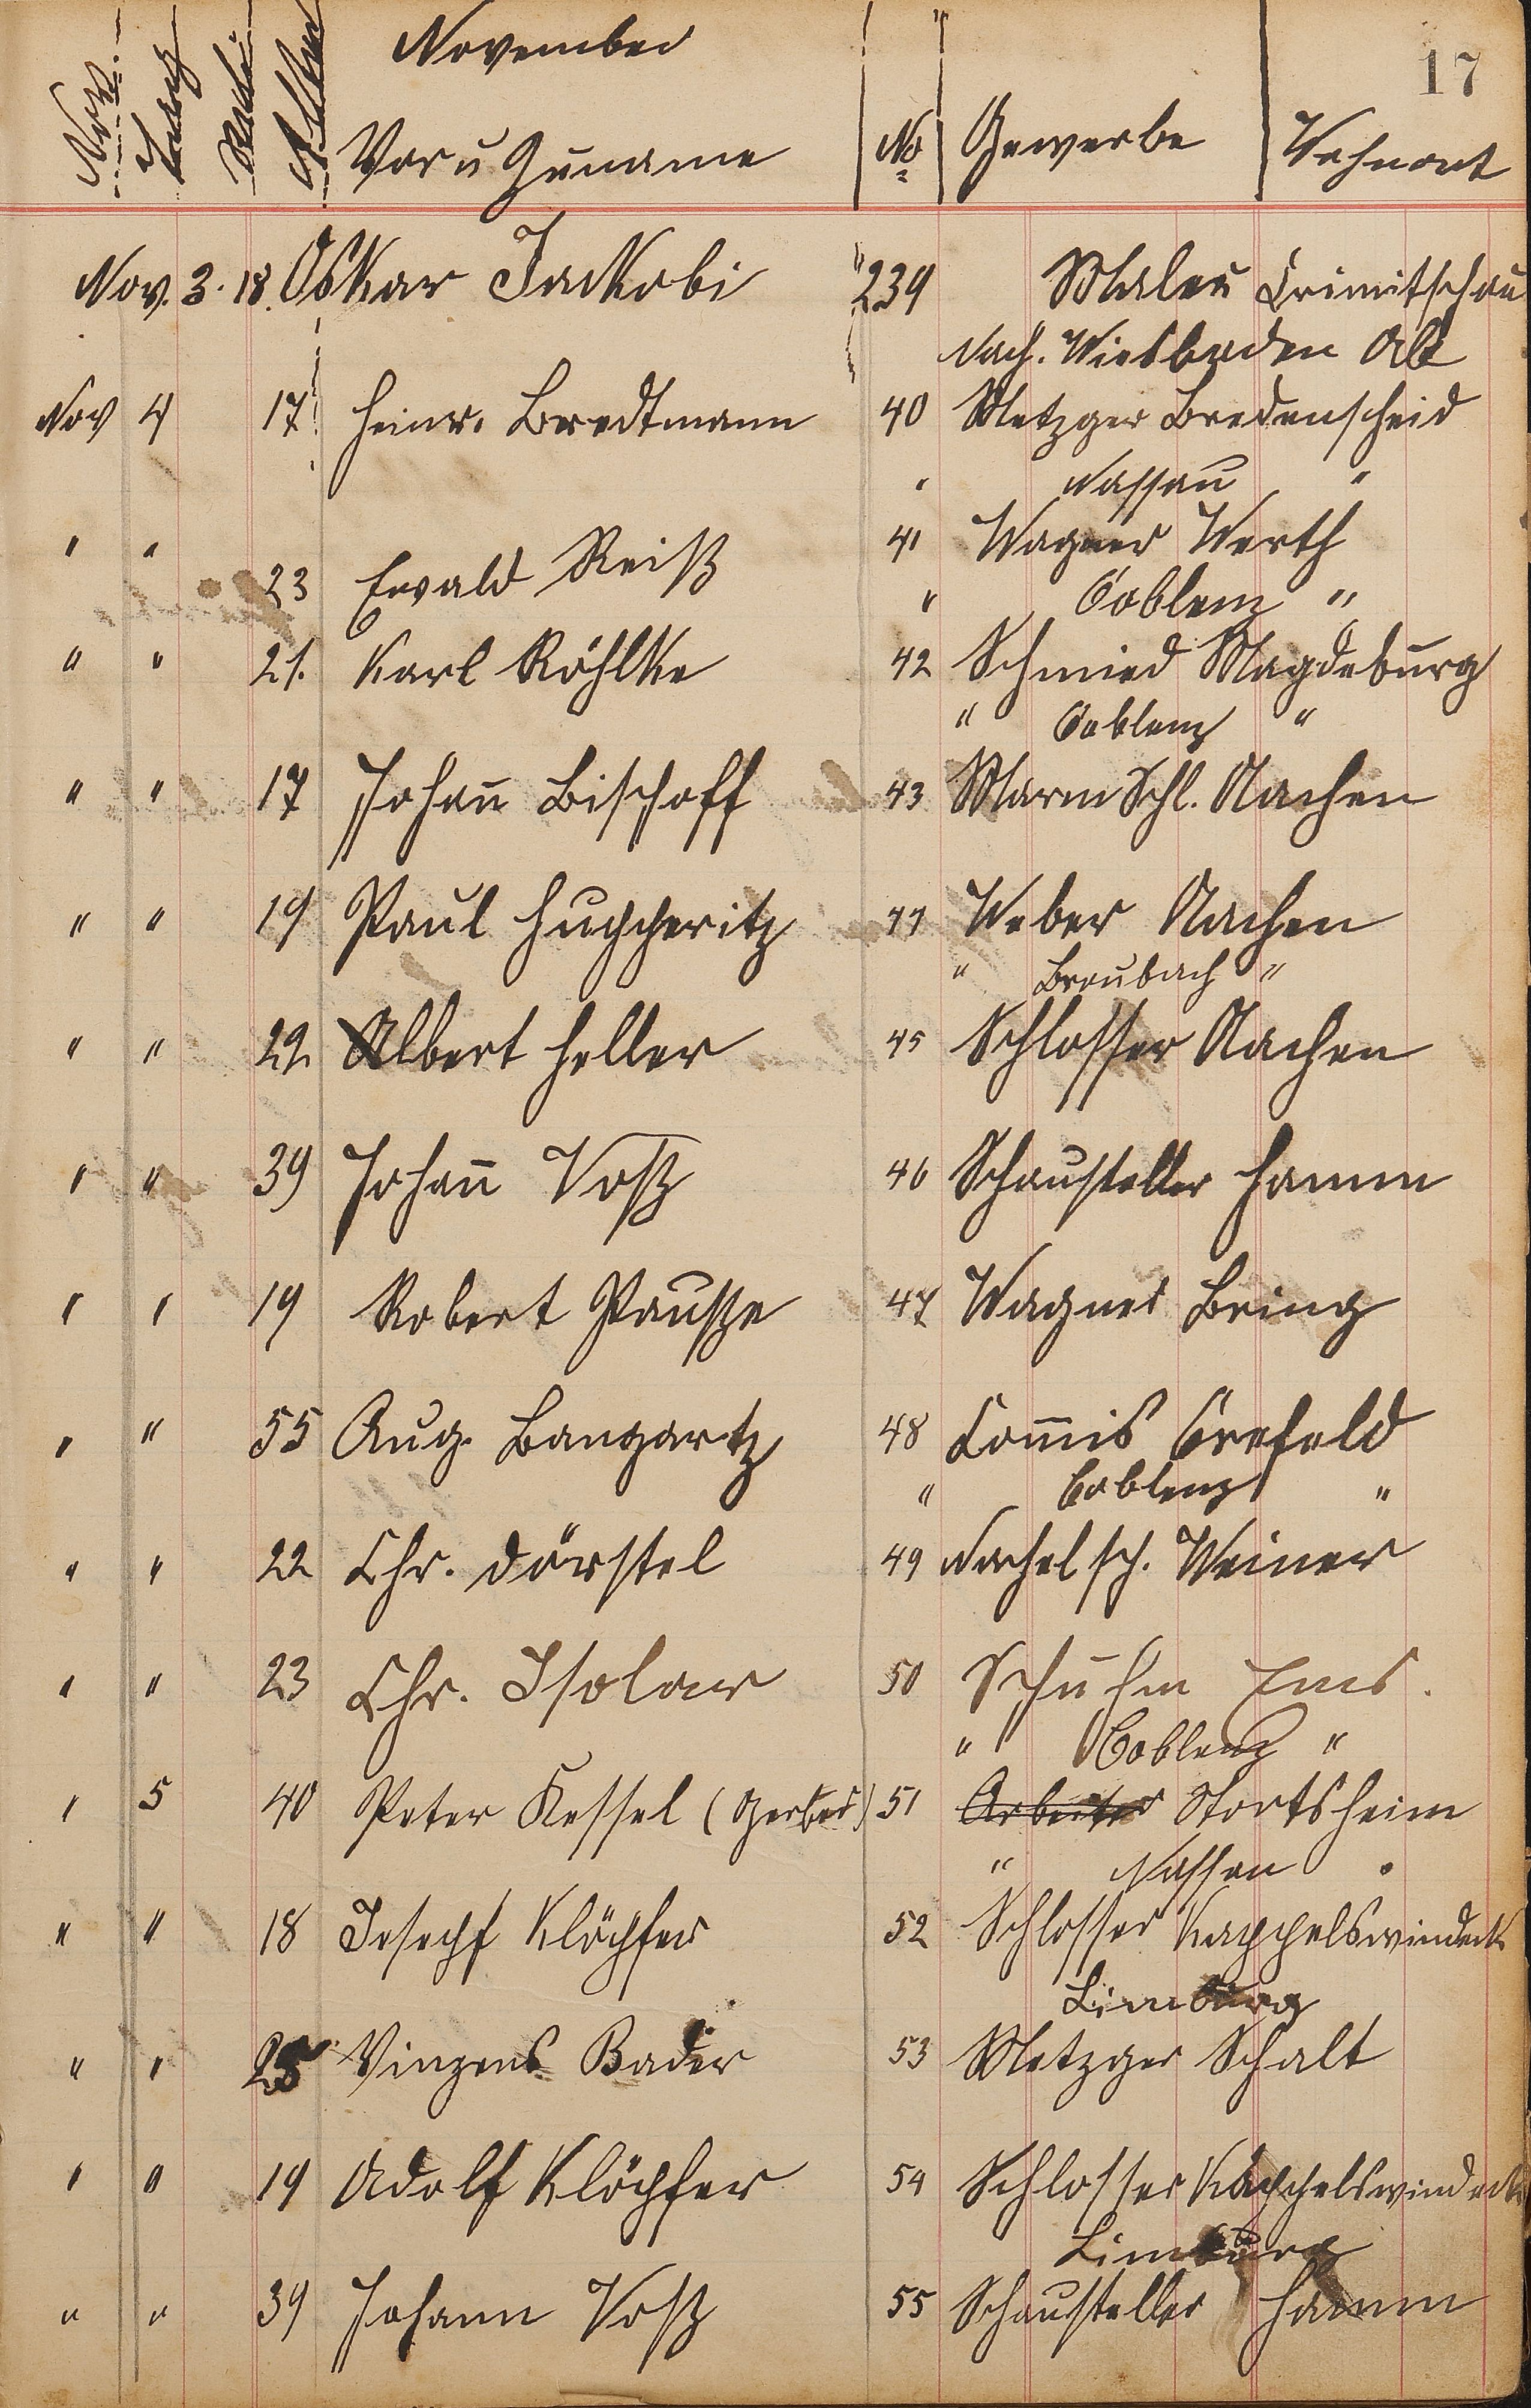 November
17
Nov. Alter
Vor u Zuname No Gewerbe Wohnort
Nov. 3. 18. Oskar Jackobi 239 Maler Crimitschau
Nach. Wiesbaden Ab
Nov 4 17 Heinr. Bredtmann 40 Metzger Bredenscheid
" Nassau "
" " 23 Ewald Reiß 41 Wagner Werth
" Coblenz "
" " 21. Karl Röhlke 42 Schmied Magdeburg
" Coblenz "
" " 17 Johan̄ Bischoff 43 Marm Schl. Aachen
" " 19 Paul Huppertz 44 Weber Aachen
" Braubach "
" " 22 Albert Heller 45 Schlosser Aachen
" " 39 Johan̄ Voß 46 Schausteller Hamm
" " 19 Robert Pauße 47 Wagner Bring
" " 55 Aug. Bangartz 48 Com̄is Crefeld
" Coblenz "
" " 22 Chr. Dörstel 49 Nachelsch. Weiner
" " 23 Chr. Isolar 50 Schuhm Ems.
" Coblenz "
" 5 40 Peter Kessel (Gerber) 51 Arbeiter Stortsheim
" Nassau "
" " 18 Josepf Klöpfer 52 Schlosser Kappelswindeck
Limburg
" " 25 Vinzens Bader 53 Metzger Schalt
" " 19 Adolf Klöpfer 54 Schlosser Kappelswindeck
Limburg
" " 39 Johann Voß 55 Schausteller Hamm